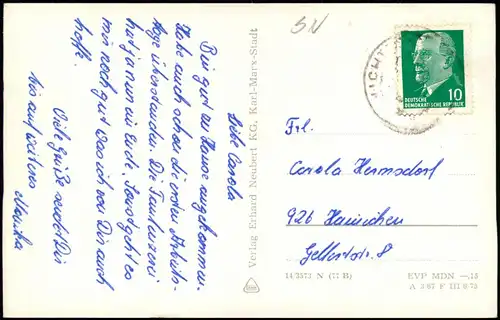 SN
Liebe Carola
Bin gut zu Hause angekommen.
Habe auch schon die ersten Arbeits-
tage überstanden. Die Faulenzerei
hat ja nun ein Ende. Sonst geht es
mir noch gut was ich von Dir auch
hoffe.
Viele Grüße sendet Dir
bis auf weiteres
Verlag Erhard Neubert KG, Karl-Marx-Stadt
DEUTSCHE
DEMOKRATISCHE REPUBLIK
10
Frl.
Carola Hermsdorf
926 Hainichen
Gellertstr. 8
N (11 B)
EVP MDN —,15
A 3 67 F III